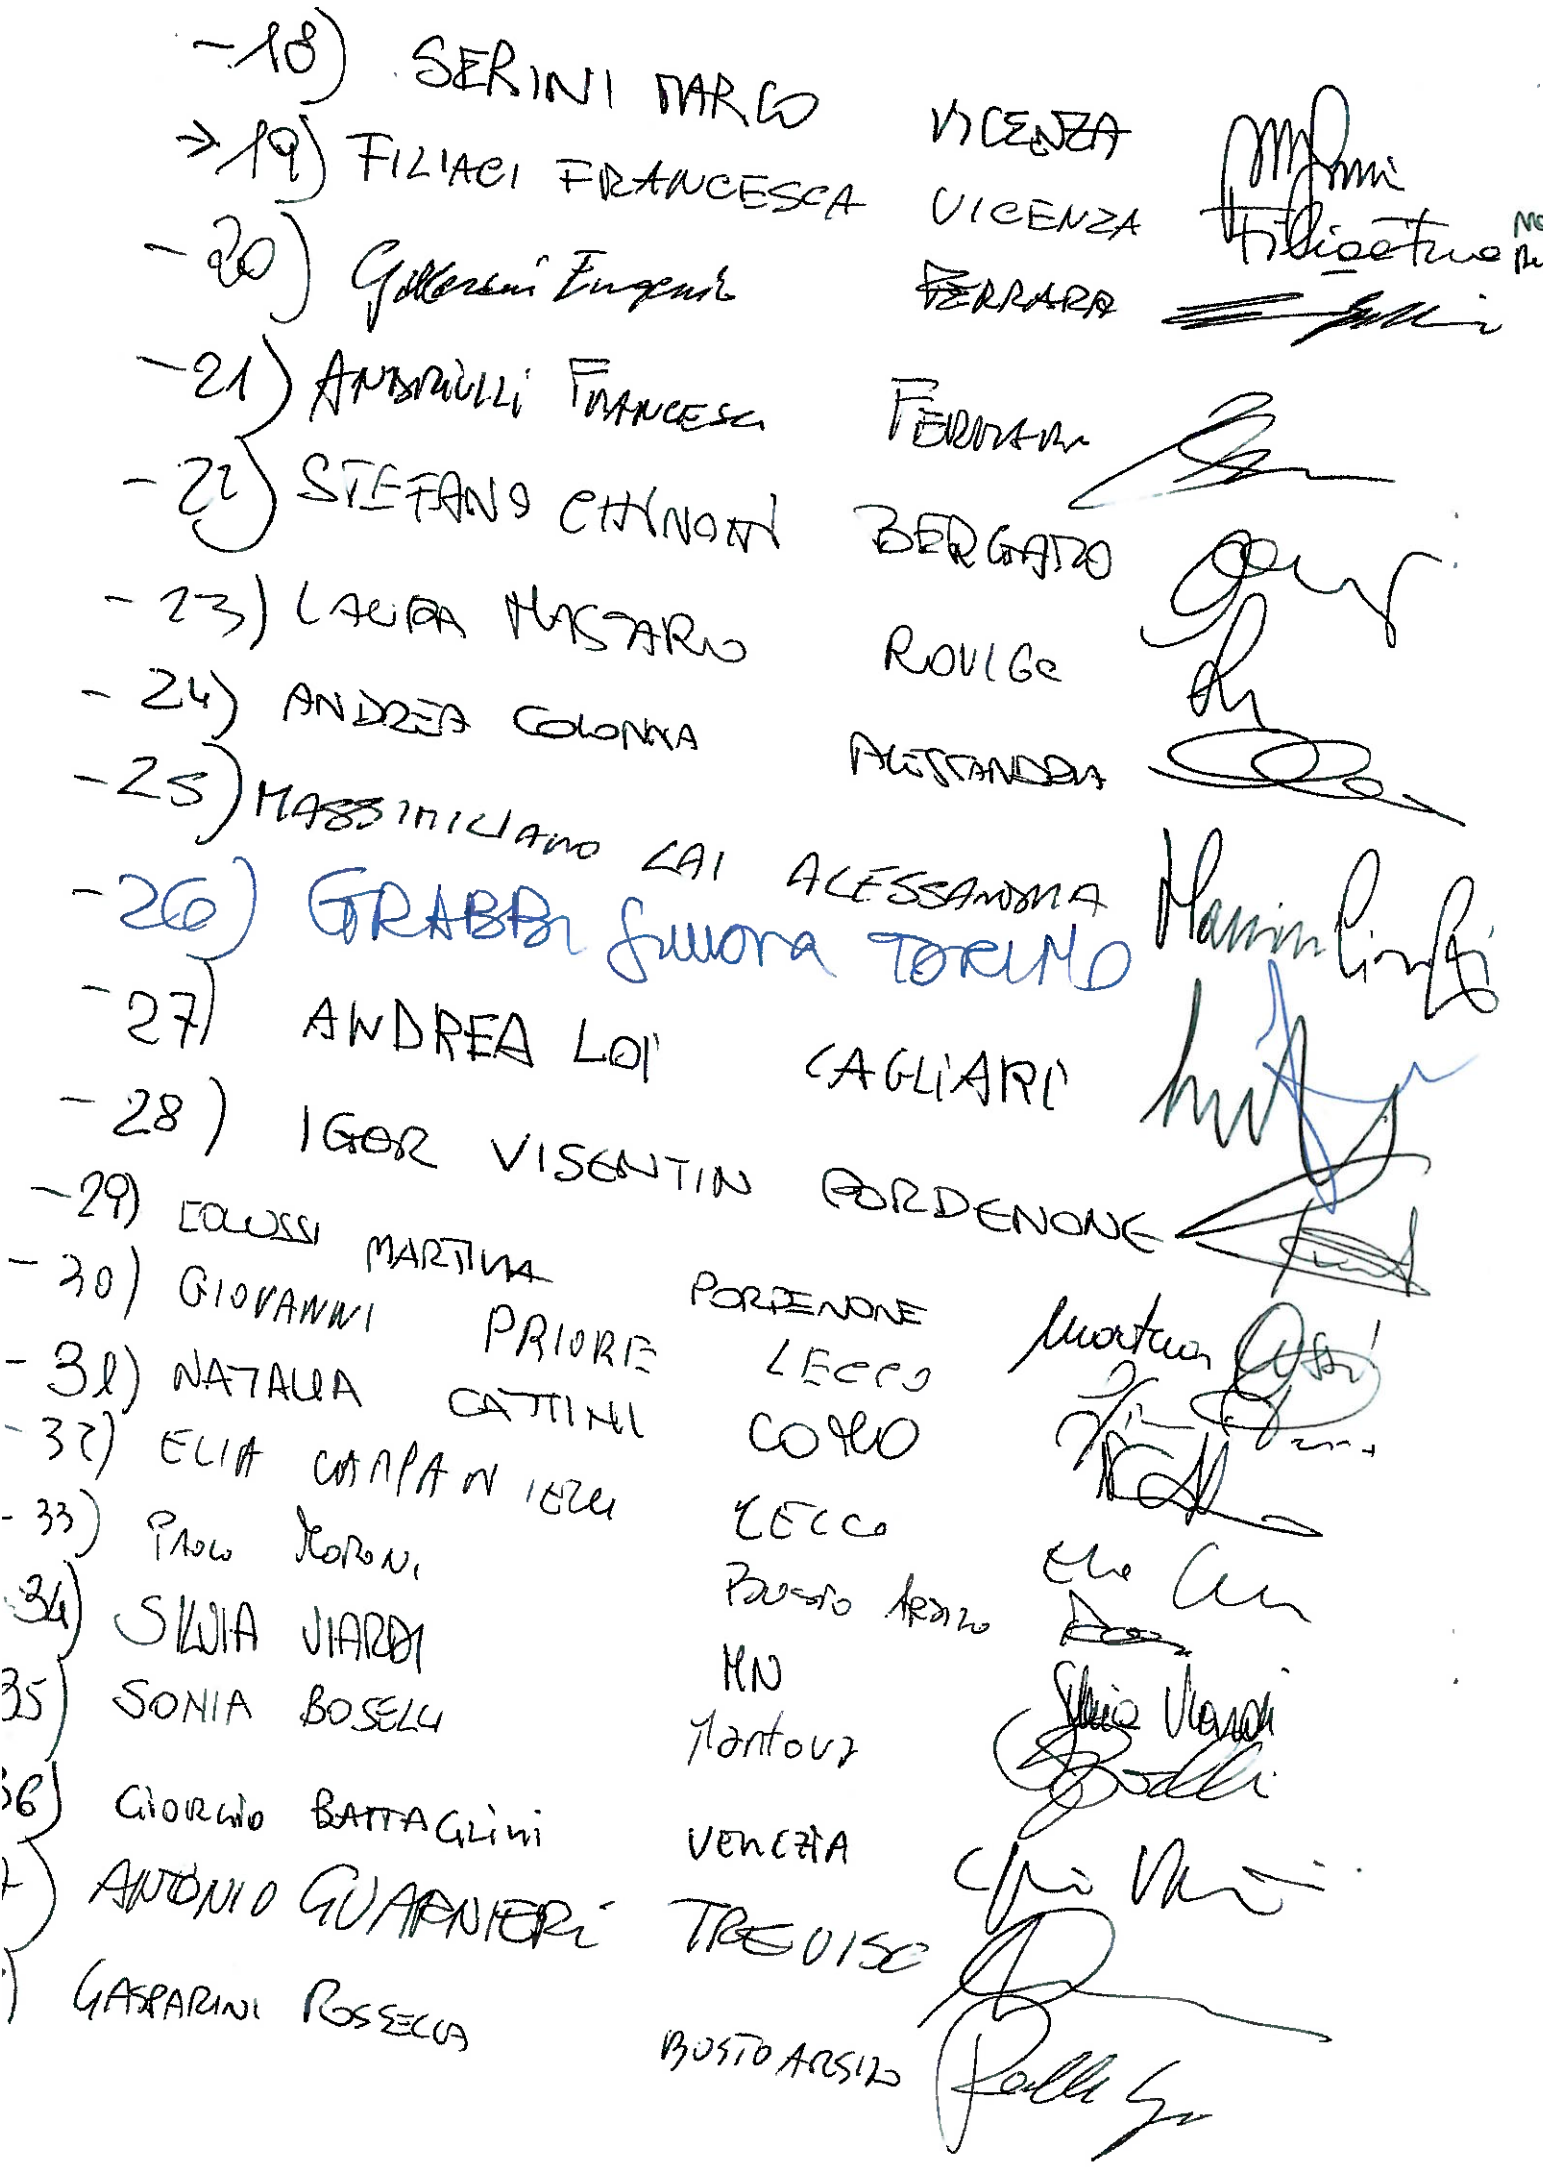 -18) SERINI MARCO VICENZA
→19) FILIACI FRANCESCA VICENZA
-20) Eugenio FERRARA
-21) ANDRIULLI FRANCESCA FERRARA
-22) STEFANO CHINOTTI BERGAMO
-23) LAURA MASTARO ROVIGO
-24) ANDREA COLONNA ALESSANDRIA
-25) MASSIMILIANO LAI ALESSANDRIA
-26) GRABBI Simona TORINO
-27) ANDREA LOI CAGLIARI
-28) IGOR VISENTIN PORDENONE
-29) COLUSSI MARTINA PORDENONE Martina
-30) GIOVANNI PRIORE LECCO
-31) NATALIA CATTINI COMO
-32) ELIA CAMPANIELLI LECCO
-33) PAOLO MORONI BUSTO ARSIZIO
34) SILVIA VIARDI MN Silvia Viardi
35) SONIA BOSELLI Mantova Boselli
36) GIORGIO BATTAGLINI VENEZIA
) ANTONIO GUARNIERI TREVISO
) GASPARINI ROSSELLA BUSTO ARSIZIO